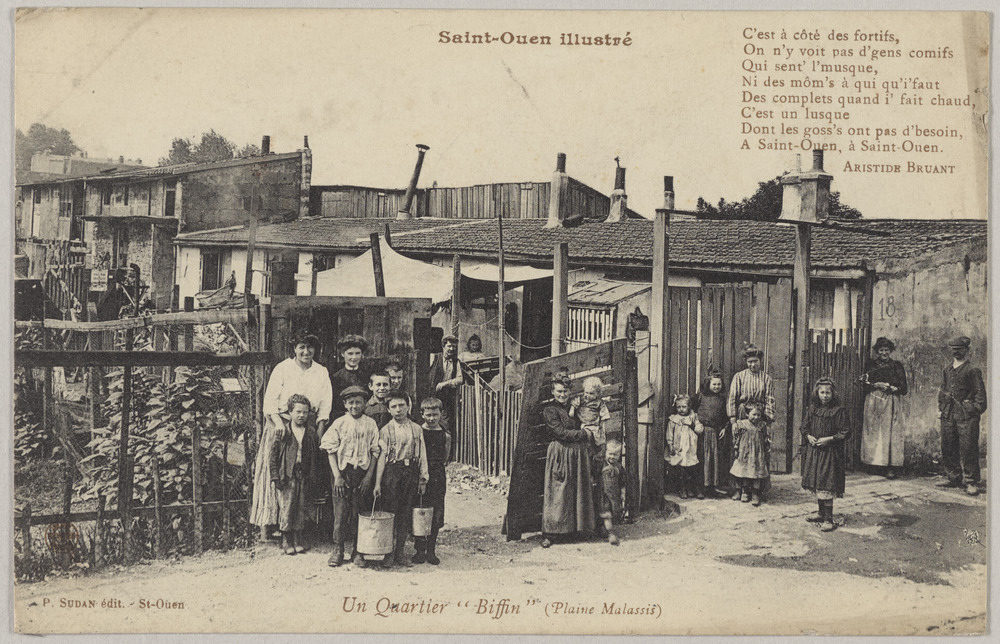 Saint-Ouen illustré
C'est à côté des fortifs,
On n'y voit pas d'gens comifs
Qui sent' l'musque,
Ni des môm's à qui qu'i'faut
Des complets quand i' fait chaud,
C'est un lusque
Dont les goss's ont pas d'besoin,
A Saint-Ouen, à Saint-Ouen.
ARISTIDE BRUANT
18
P. SUDAN édit. - St-Ouen
Un Quartier "Biffin" (Plaine Malassis)